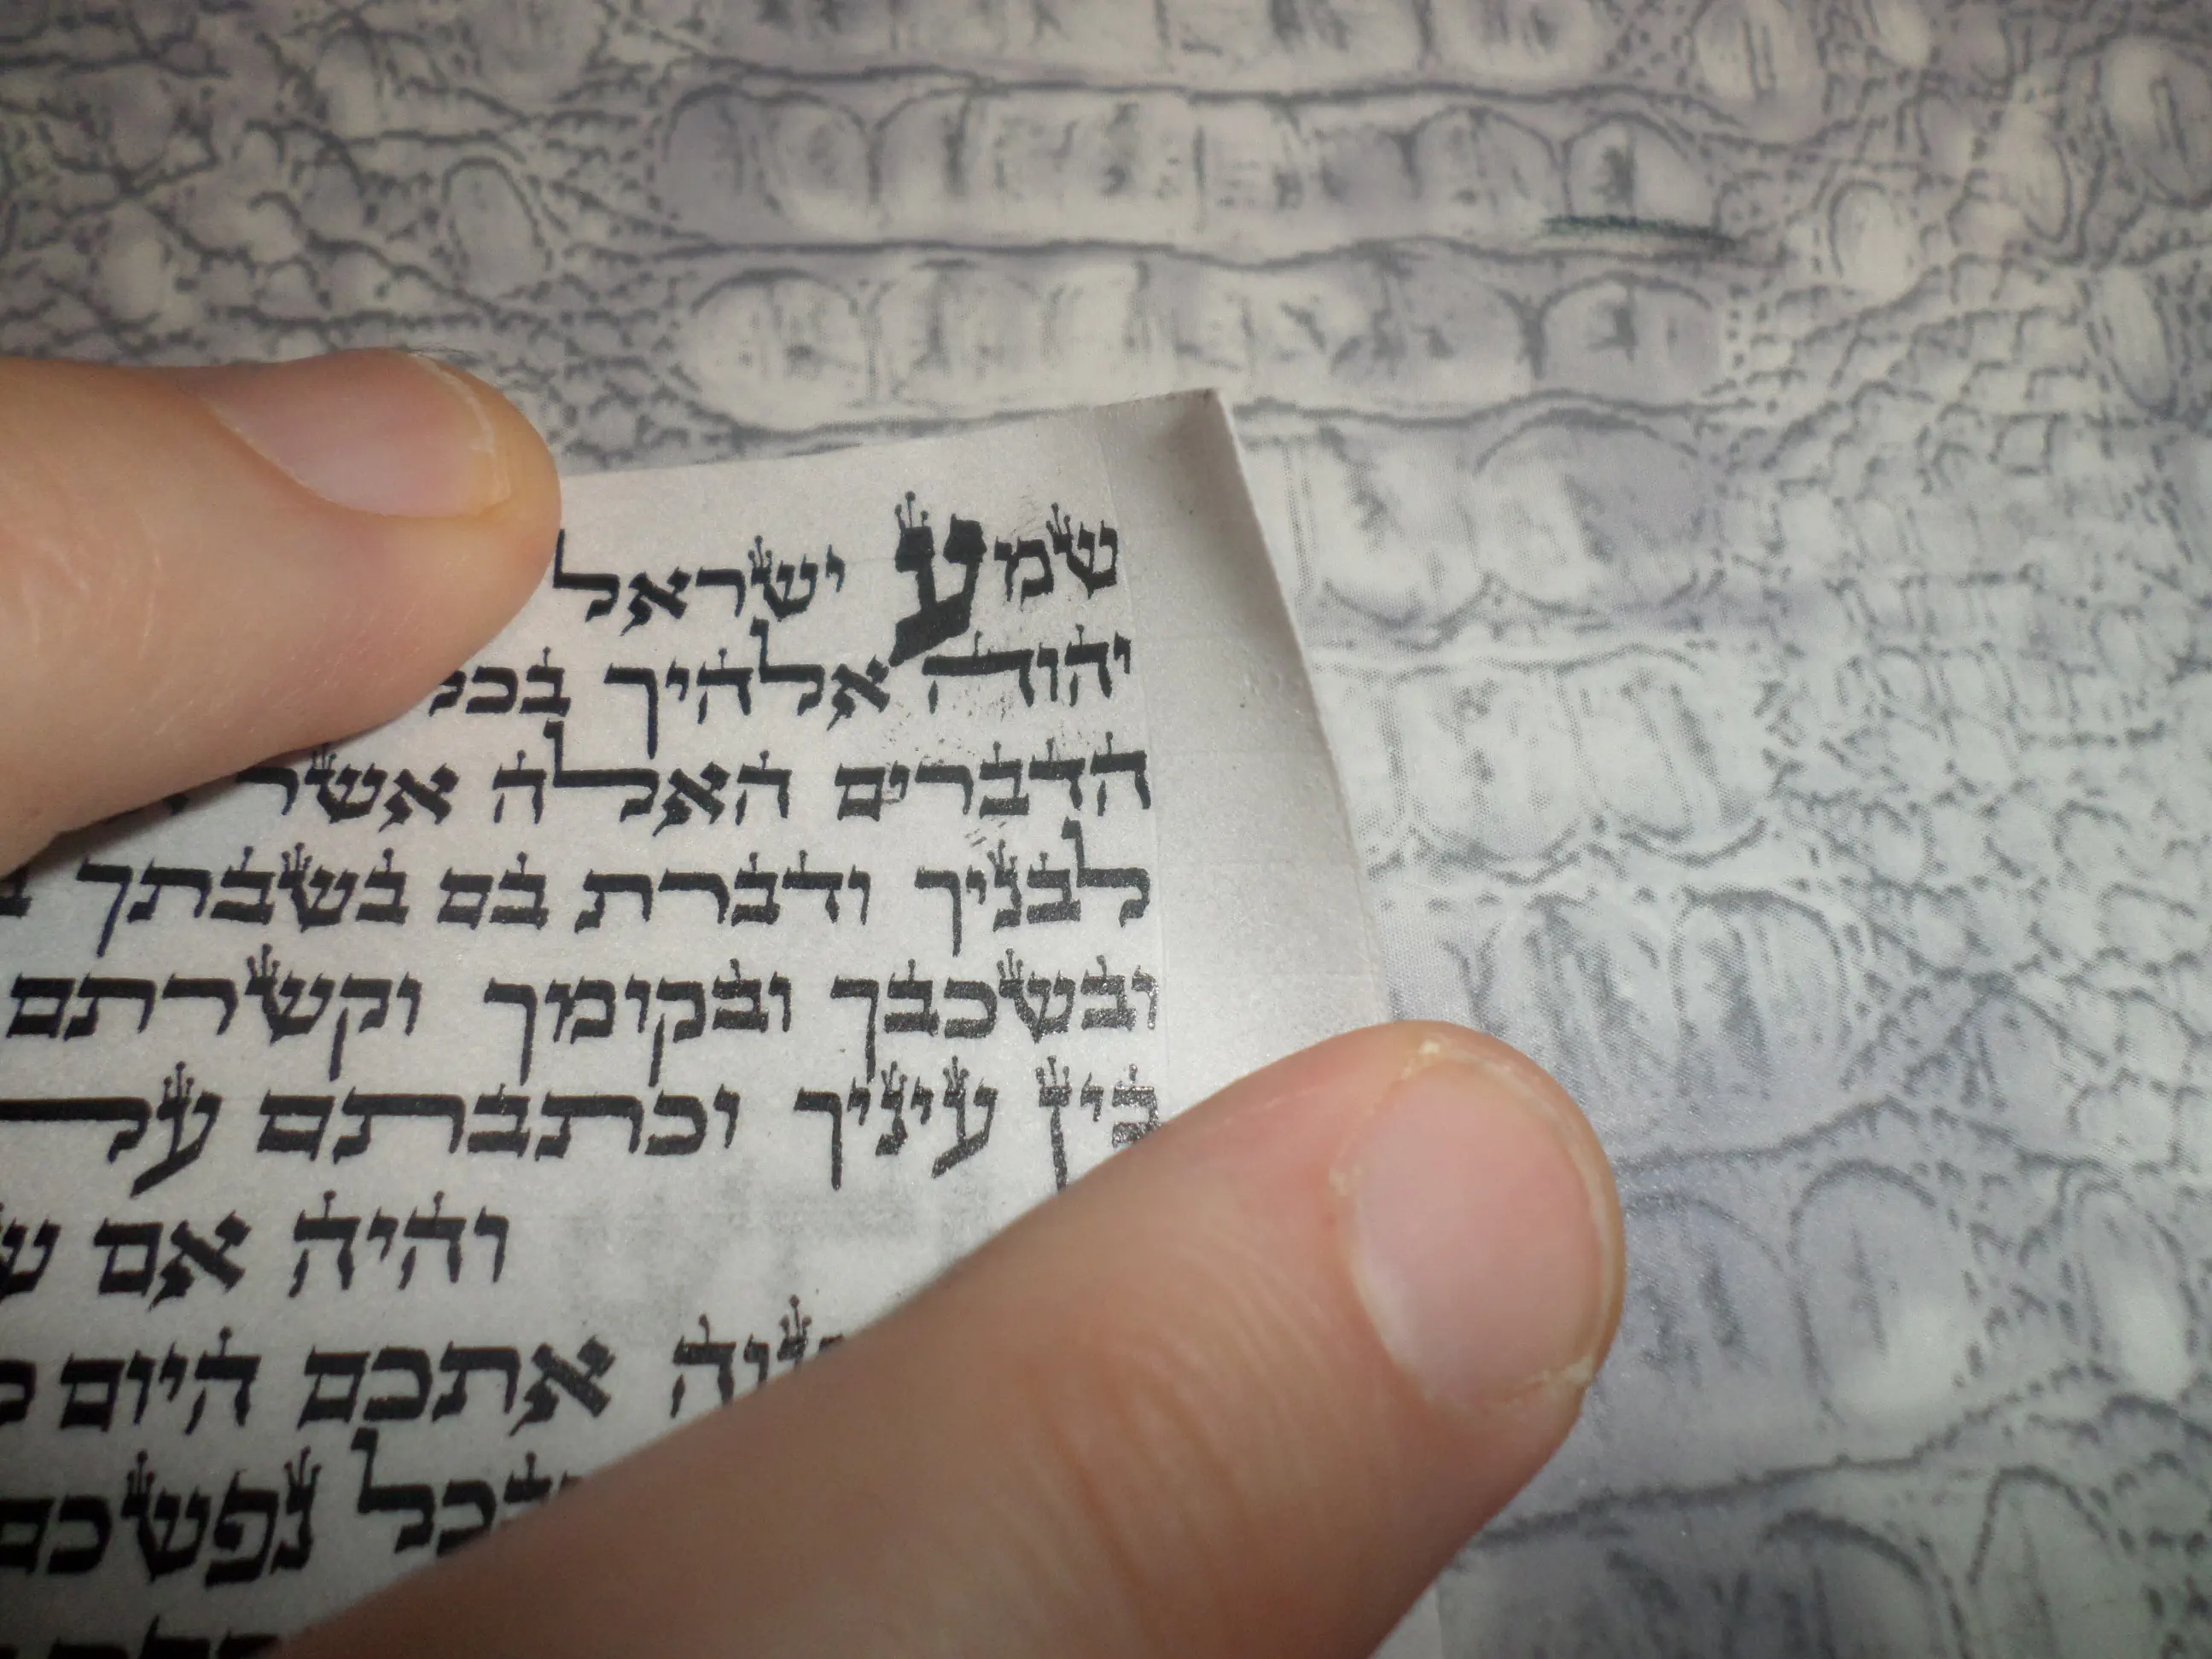 שמע ישראל
יהוה אלהיך בכל
הדברים האלה אשר
לבניך ודברת בם בשבתך
ובשכבך ובקומך וקשרתם
בין עיניך וכתבתם על
והיה אם
אתכם היום
נפשכם